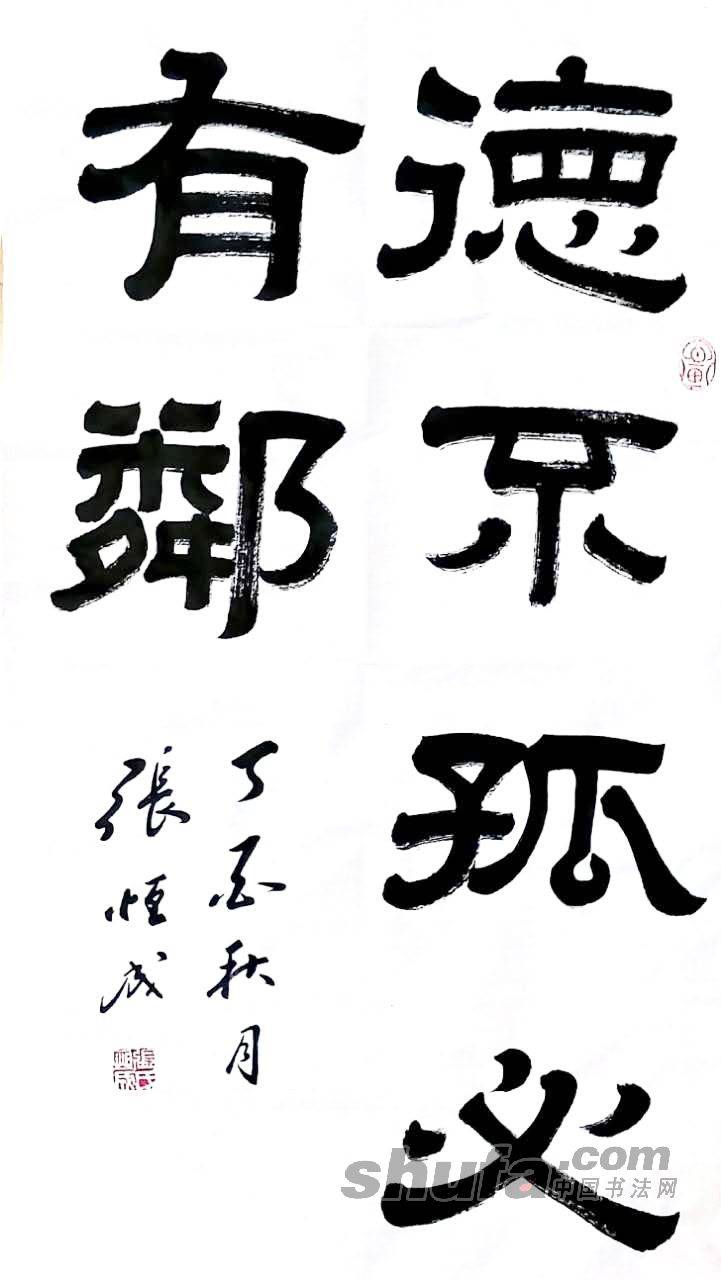 德不孤必
有鄰
丁酉秋月
張恒成
shufa.com
中国书法网